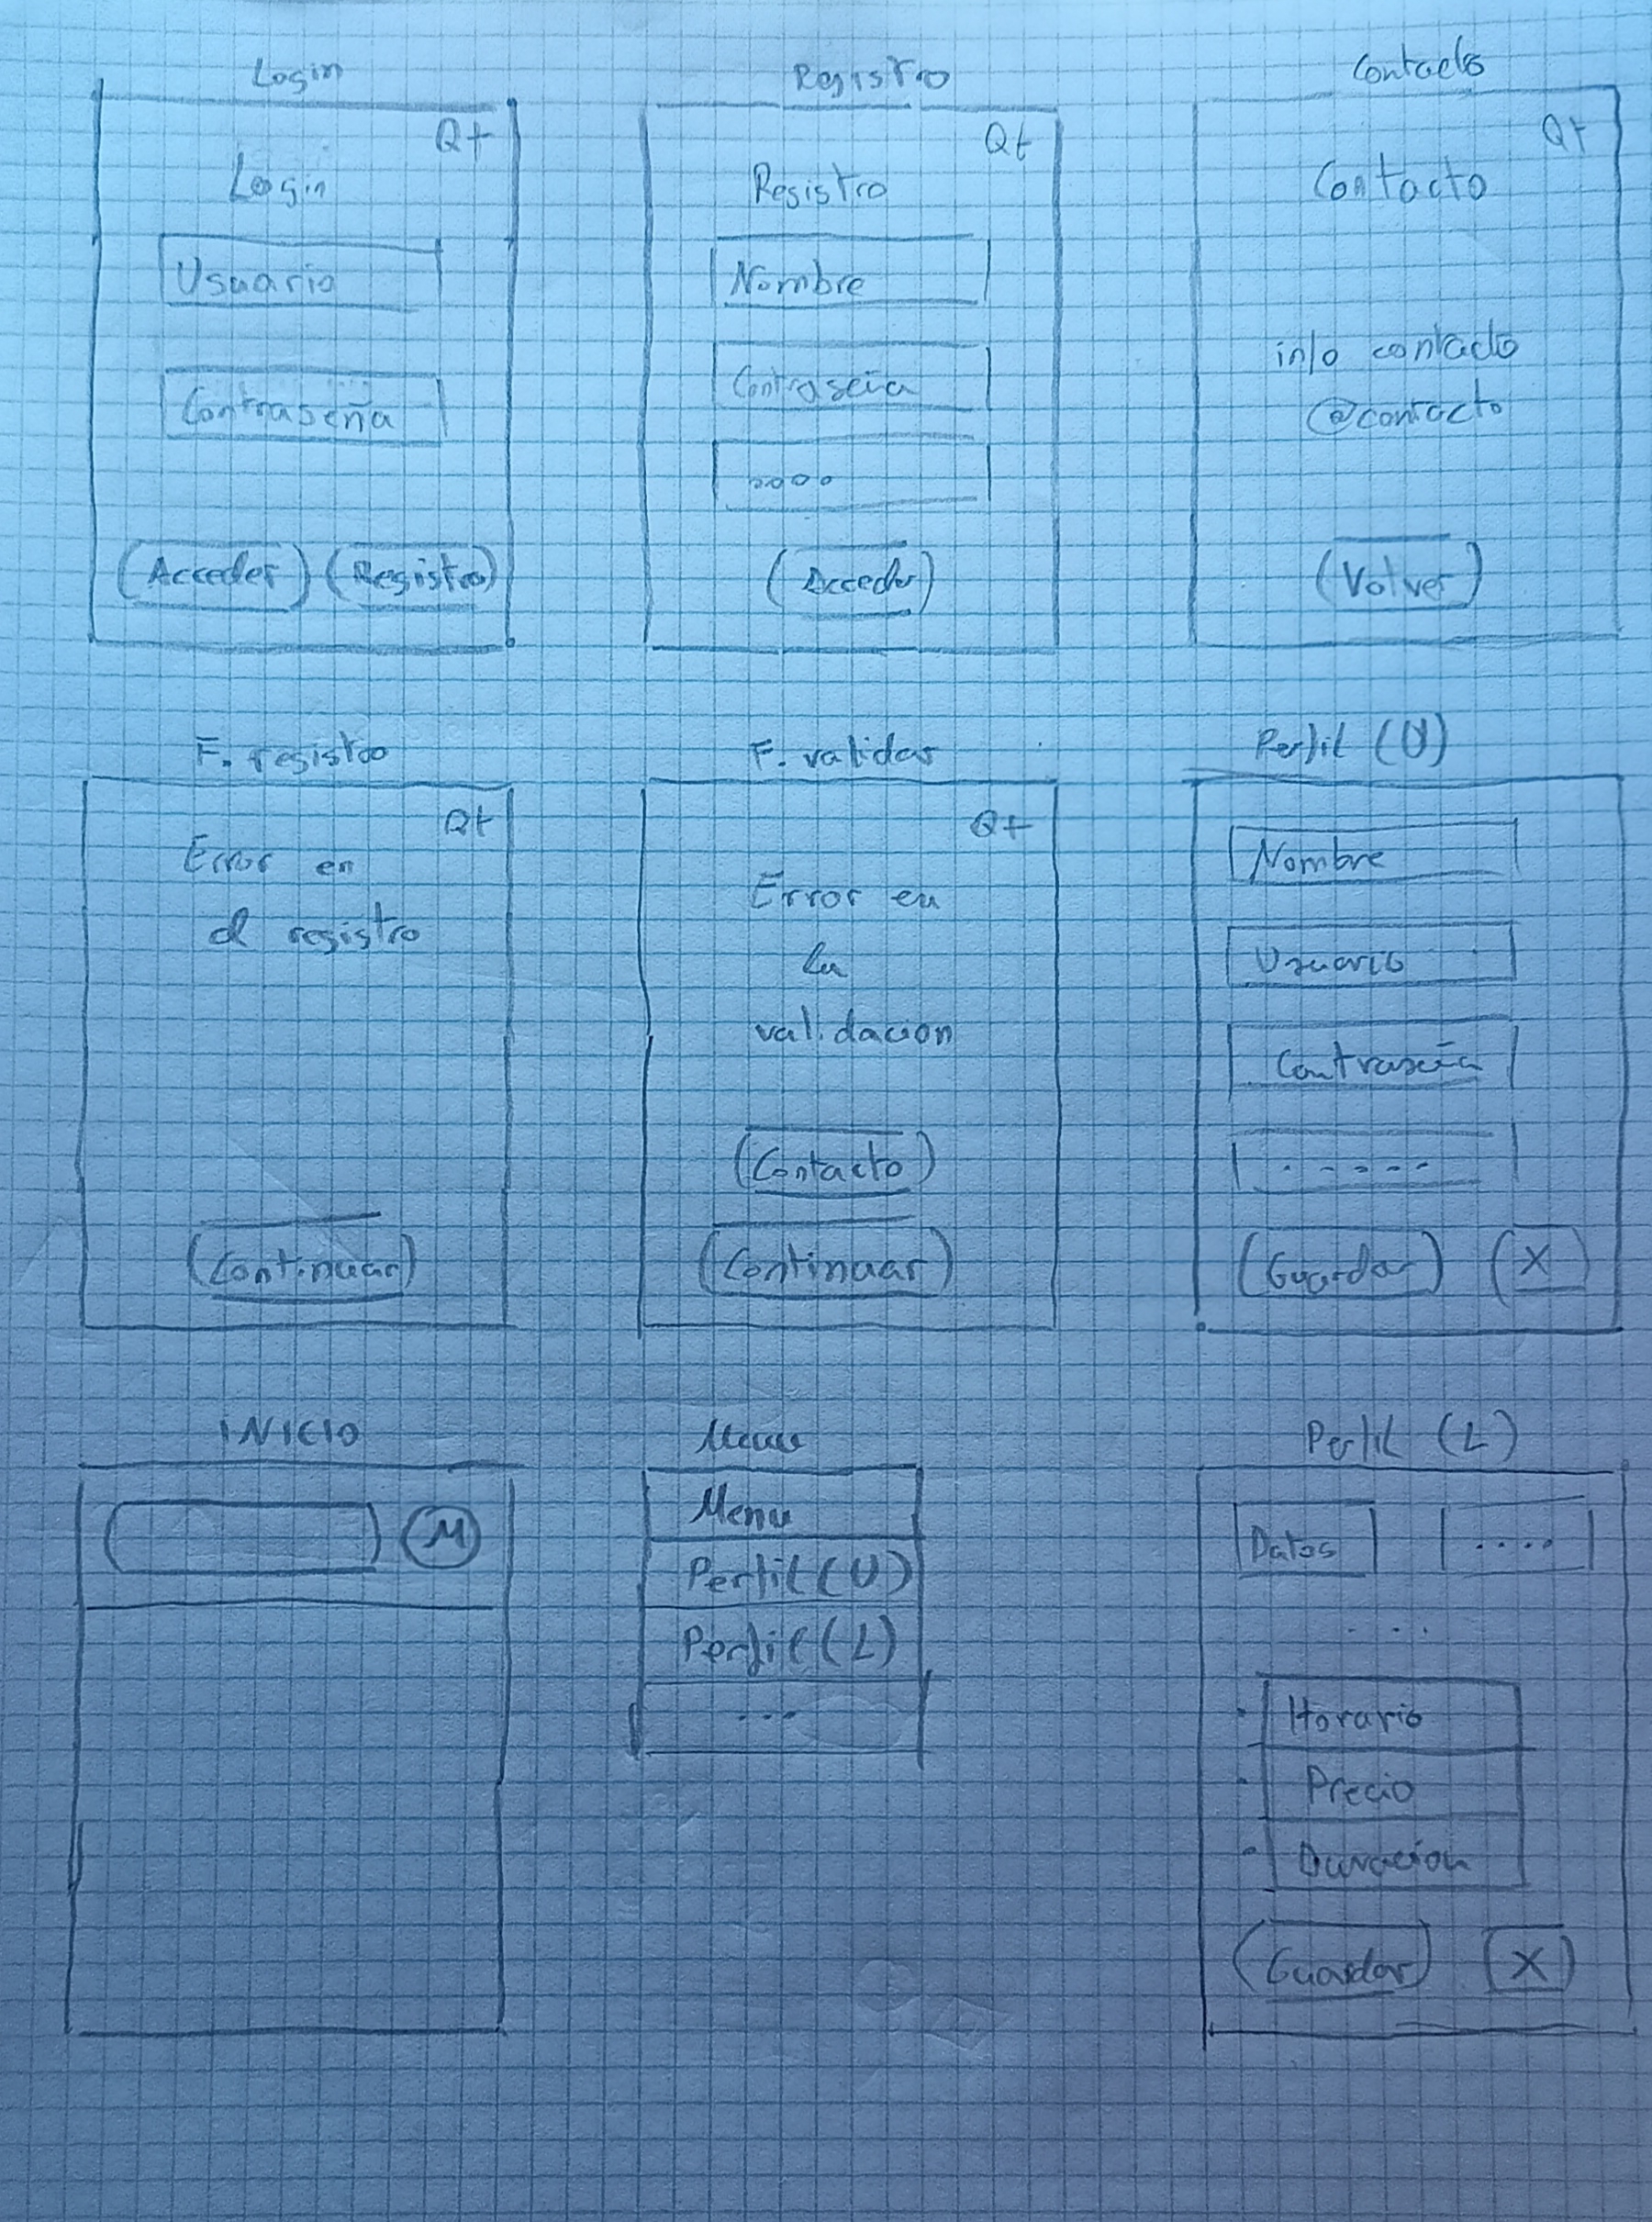 Login
Qt
Login
Usuario
Contraseña
(Acceder) (Registro)
Registro
Qt
Registro
Nombre
Contraseña
oooo
(Acceder)
Contacto
Qt
Contacto
info contacto
@contacto
(Volver)
F. registro
Qt
Error en
el registro
(Continuar)
F. validar
Qt
Error en
la
validacion
(Contacto)
(Continuar)
Perfil (U)
Nombre
Usuario
Contraseña
......
(Guardar) (X)
INICIO
M
Menu
Menu
Perfil (U)
Perfil (L)
...
Perfil (L)
Datos ....
....
Horario
Precio
Duracion
(Guardar) (X)